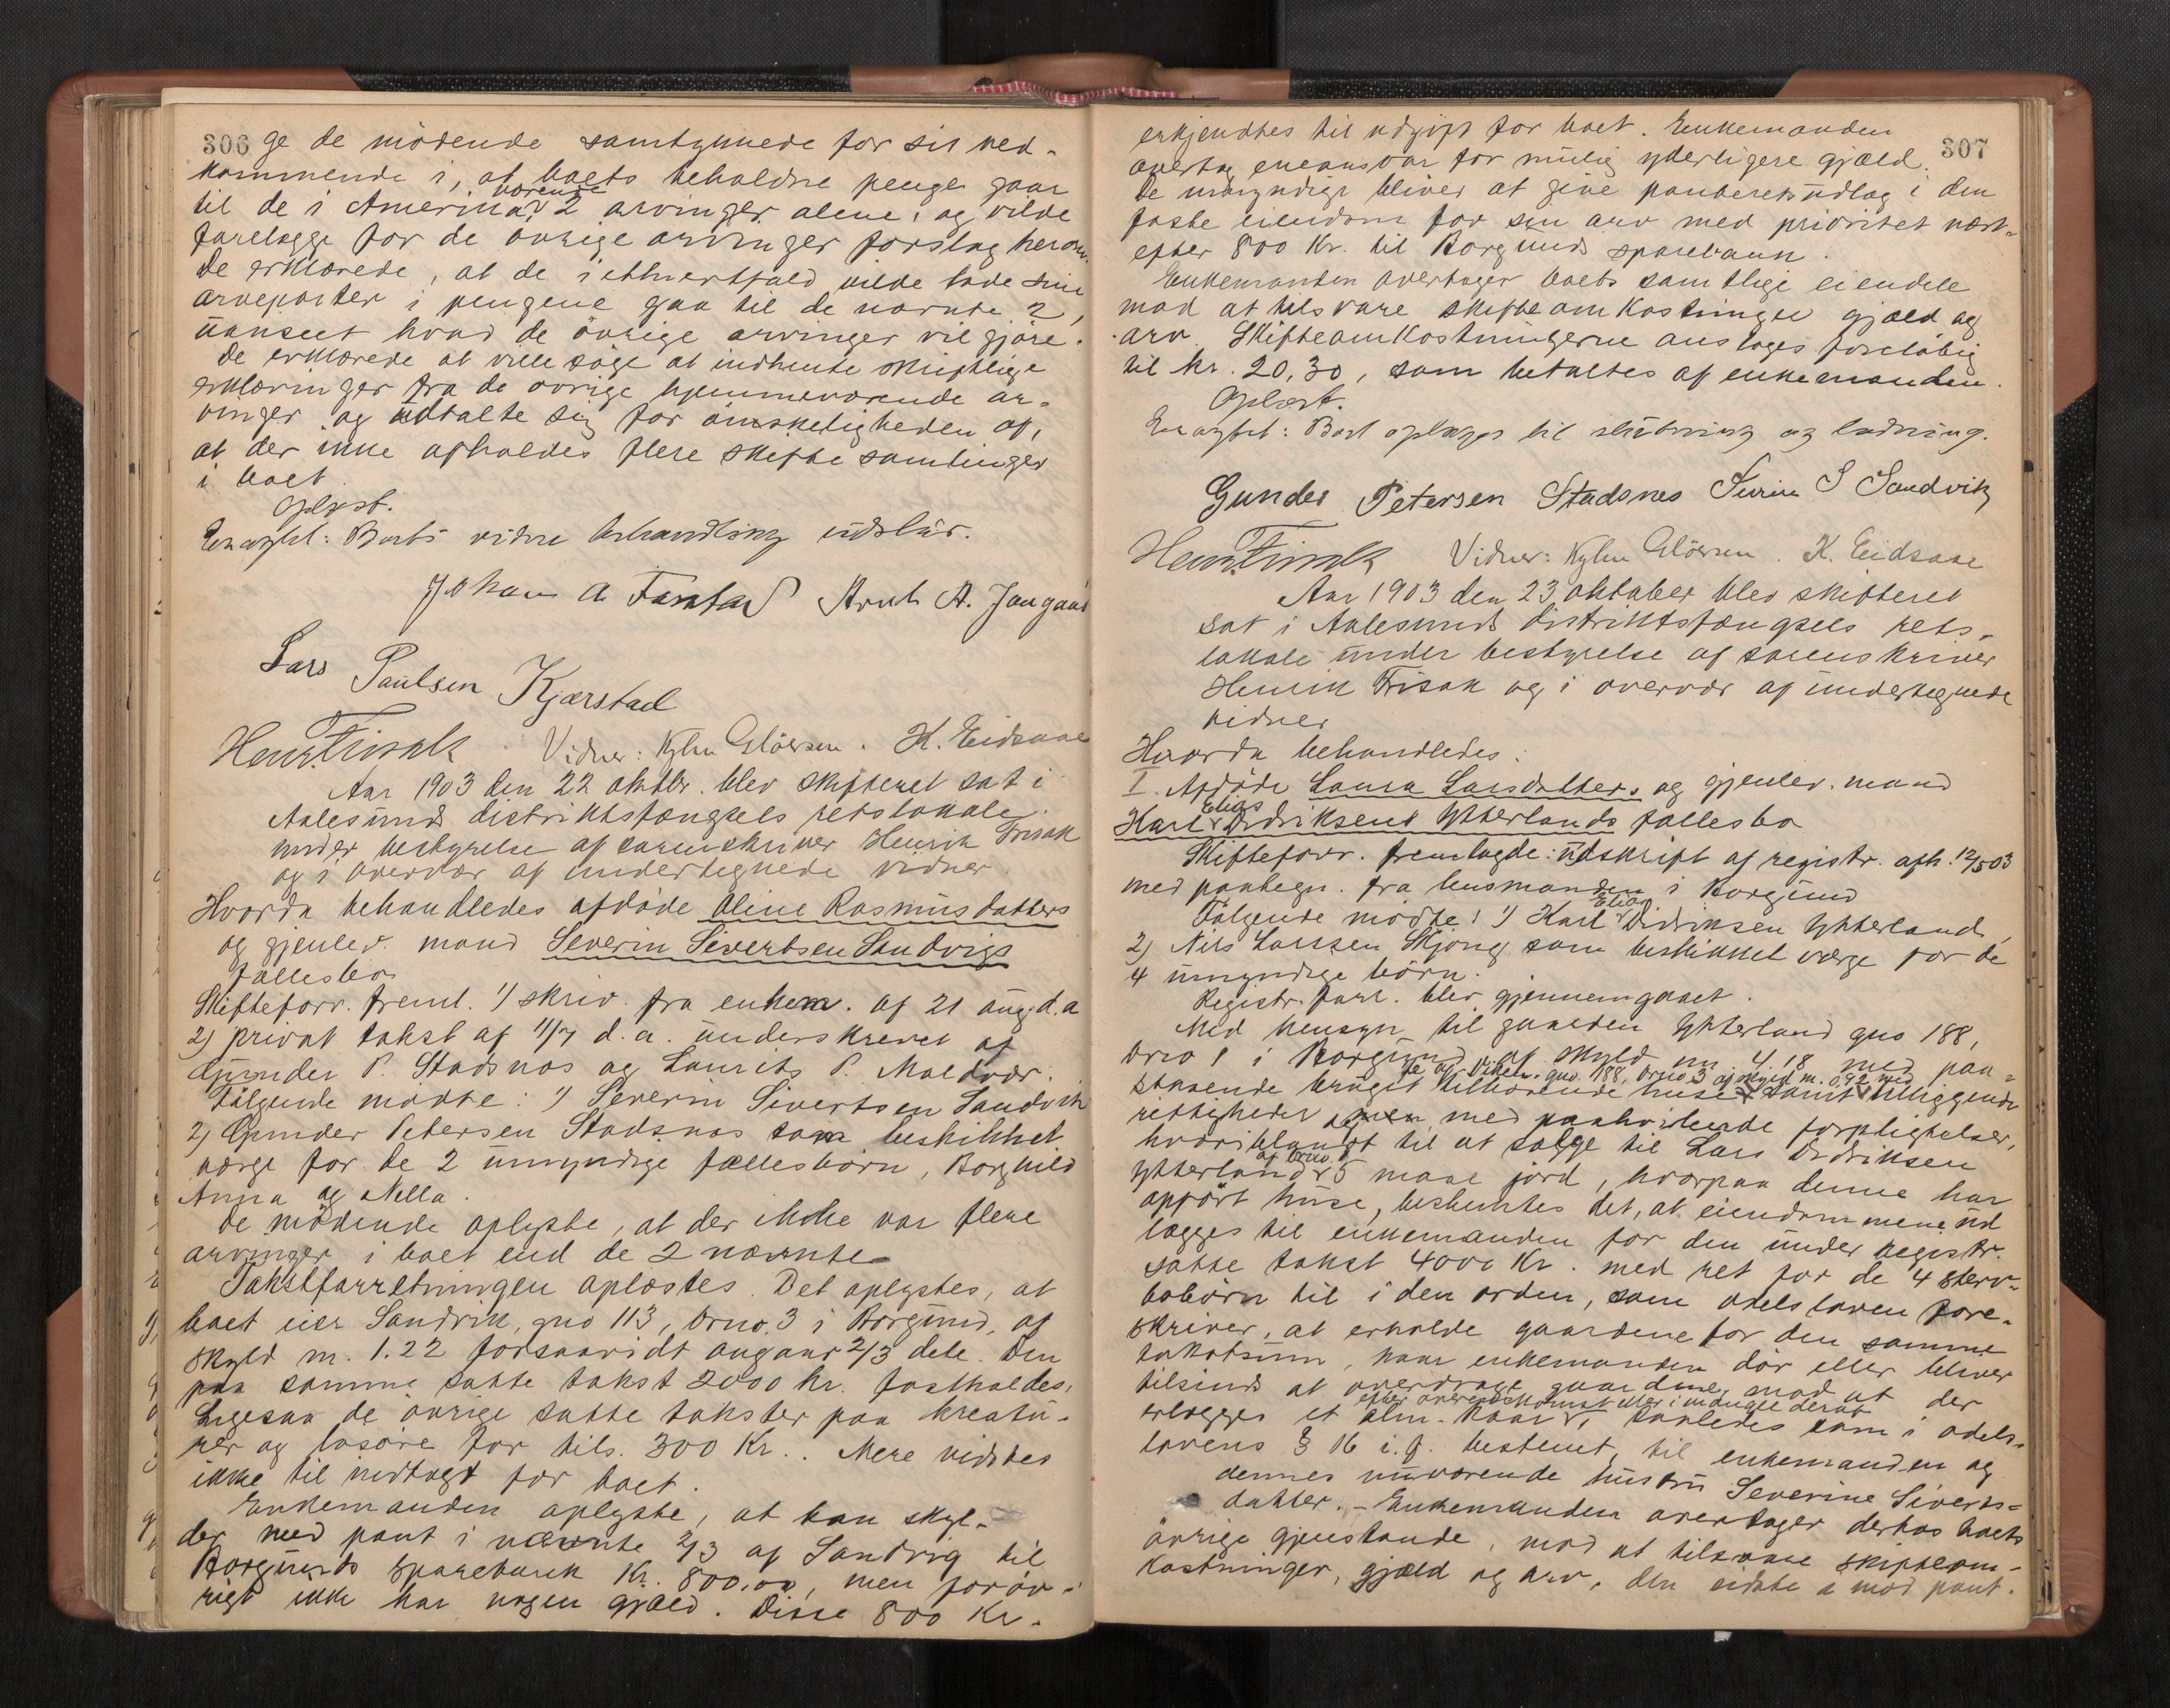 306
ge de mödende samtykkede for sit ved-
kommende i, at boets beholdne penge gaar
til de i Amerika værende 2 arvinger alene, og vilde
forelægge for de övrige arvinger forslag herom.
De erklærede, at de i ethvertfald vilde lade sine
arveparter i pengene gaa til de nævnte 2,
uanseet hvad de övrige arvinger vil gjöre.
De erklærede at ville söge at indhente skriftlige
erklæringer fra de övrige hjemmeværende ar-
vinger og udtalte sig for önskeligheden af,
at der ikke afholdes flere skiftesamlinger
i boet.
Oplæst.
Eragtet: Boets videre behandling udstaar.
Johan A Farstad Arnt A.
Lars Paulsen Kjærstad
Henr. Frisak Vidner: K. Eidsaae
Aar 1903 den 22 oktbr. blev skifteret sat i
Aalesunds distriktsfængsels retslokale
under bestyrelse af sorenskriver Henrik Frisak
og i overvær af undertegnede vidner.
Hvorda behandledes afdöde Oline Rasmusdatters
og gjenlev. mand Severin Sivertsen Sandvigs
fællesbo
Skifteforv. freml. 1) skriv. fra enkem. af 21 aug. d.a
2) privat takst af 11/7 d.a. underskrevet af
Gunder P. Stadsnæs og Laurits P. Molvær.
Fölgende mödte: 1) Severin Sivertsen Sandvik
2) Gunder Petersen Stadsnæs som beskikket
værge for de 2 umyndige fællesbörn, Borghild
Anna og Nella.
De mödende oplyste, at der ikke var flere
arvinger i boet end de 2 nævnte
Takstforretningen oplæstes. Det oplystes, at
boet eier Sandvik, gno 113, brno. 3 i Borgund, af
skyld m. 1.22 forsaavidt angaar 2/3 dele. Den
paa samme satte takst 2000 kr. fastholdes,
Ligesaa de övrige satte takster paa kreatu-
rer og lösöre for tils. 300 Kr.. Mere vidstes
ikke til indtægt for boet.
Enkemanden oplyste, at han skyl-
der med pant i nævnte 2/3 af Sandvig til
Borgunds Sparebank Kr. 800,00, men foröv-
rigt ikke har nogen gjæld. Disse 800 Kr.
307
erkjendtes til udgift for boet. Enkemanden
overtog eneansvar for mulig yderligere gjæld.
De umyndige bliver at give panteretsudlæg i den
faste eiendom for sin arv med prioritet næst-
efter 800 Kr. til Borgunds sparebank.
Enkemanden overtager boets samtlige eiendele
mod at tilsvare skifteomkostninger gjæld og
arv. Skifteomkostningerne ansloges foreløbig
til kr. 20,30, som betaltes af enkemanden.
Oplæst.
Eragtet: Boet optages til slutning og lodning.
Gunder Petersen Stadsnes Severin S Sandvik
Henr. Frisak Vidner: K. Eidsaae
Aar 1903 den 23 oktober blev skifteret
sat i Aalesunds distriktsfængsels rets-
lokale under bestyrelse af sorenskriver
Henrik Frisak og i overvær af undertegnede
vidner
Hvorda behandledes:
I. Afdöde Laura Larsdatters og gjenlev. mand
Karl Elias Didriksens Ytterlands fællesbo
Skifteforv. fremlagde: Udskrift af registr. afh. 12/5 03
med paategn. fra lensmanden i Borgund
Fölgende mödte: 1) Karl Elias Didriksen Ytterland,
2) Nils Larssen Skjong som beskikket værge for de
4 umyndige börn.
Registr. forr. blev gjennemgaaet.
Med hensyn til gaarden Ytterland gno 188,
brno 1 i Borgund, af skyld m 4,18 med paa-
staaende bruget tilhörende huse gno. 188, brno 3 af skyld m. 0,92 med samt tilliggende
rettigheder, men med paahvilende forpligtelser,
hvoriblandt til at sælge til Lars Didriksen
Ytterland af brno. 1 5 maal jord, hvorpaa denne har
opfört huse, besluttes det, at eiendommene ud
lægges til enkemanden for den under registr.
satte takst 4000 Kr. med ret for de 4 sterv-
bobörn til i den orden, som odelsloven fore-
skriver, at erholde gaardene for den samme
takstsum, naar enkemanden dör eller bliver
tilsinds at overdrage gaardene, mod at der
erlægges et alm. kaar efter overenskomst eller i mangel deraf saaledes som i odels-
lovens § 16 i.f. bestemt, til enkemanden og
dennes nuværende hustru Severine Siverts-
datter. - Enkemanden overtager derhos boets
övrige gjenstande, mod at tilsvare skifteom-
kostninger, gjæld og arv, den sidste mod pant.